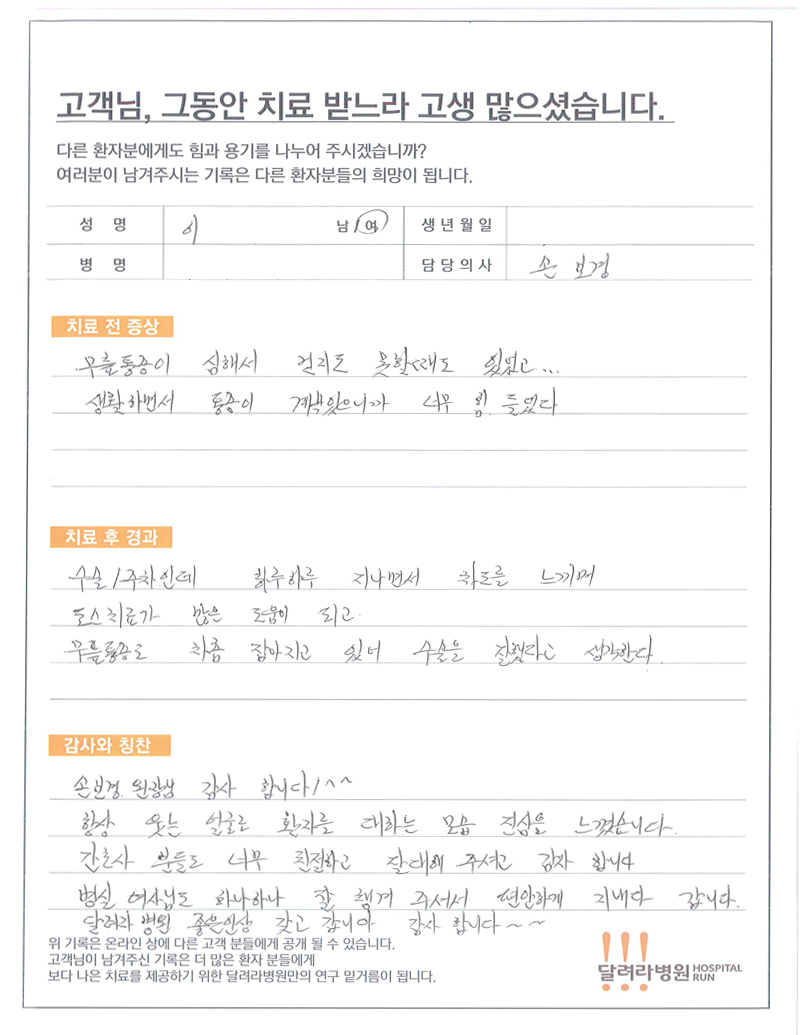 고객님, 그동안 치료 받느라 고생 많으셨습니다.
다른 환자분에게도 힘과 용기를 나누어 주시겠습니까?
여러분이 남겨주시는 기록은 다른 환자분들의 희망이 됩니다.
성 명 이 남/여 생년월일
병 명 담당의사 손 보경
치료 전 증상
무릎통증이 심해서 걷지도 못할때도 있었고...
생활하면서 통증이 계속있으니까 너무 힘들었다
치료 후 경과
수술 1주차인데 하루하루 지나면서 차도를 느끼며
도수치료가 많은 도움이 되고.
무릎통증도 차츰 잡아지고 있어 수술을 잘했다고 생각한다.
감사와 칭찬
손보경 원장님 감사 합니다!^^
항상 웃는 얼굴로 환자를 대하는 모습 진심을 느꼈습니다.
간호사 분들도 너무 친절하고 잘대해 주셔고 감사 합니다
병실 여사님도 하나하나 잘 챙겨 주셔서 편안하게 지내다 갑니다.
달려라 병원 좋은인상 갖고 갑니다 감사 합니다~~
위 기록은 온라인 상에 다른 고객 분들에게 공개 될 수 있습니다.
고객님이 남겨주신 기록은 더 많은 환자 분들에게
보다 나은 치료를 제공하기 위한 달려라병원만의 연구 밑거름이 됩니다.
달려라병원 HOSPITAL RUN